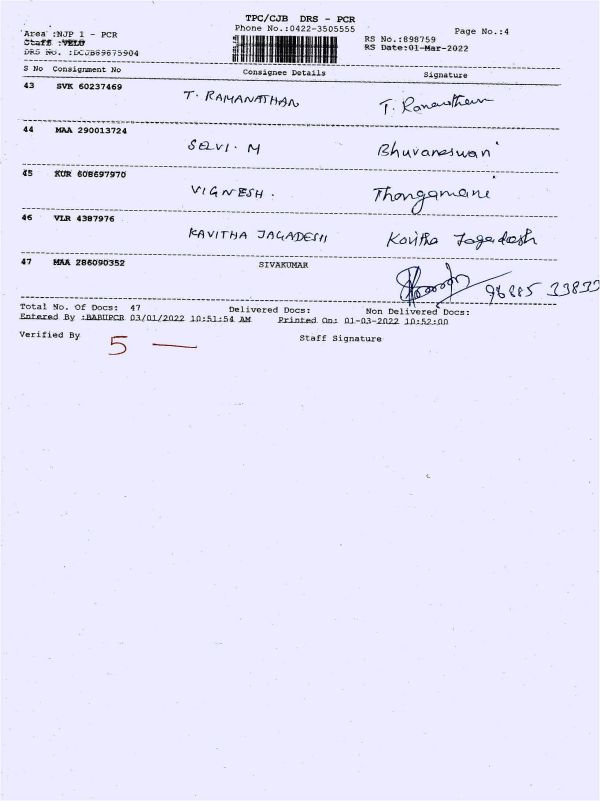 TPC/CJB DRS - PCR
Phone No.:0422-3505555
Page No.:4
Area :NJP 1 - PCR
RS No.:898759
Staff :VELU
RS Date:01-Mar-2022
DRS No. :DCJB69675904
S No Consignment No Consignee Details Signature
43 SVK 60237469 T. RAMANATHAN T. Ramanathan
44 MAA 290013724 SELVI. M Bhuvaneswari
45 KUR 608697970 VIGNESH. Thangamani
46 VLR 4387976 KAVITHA JAGADESH Kavitha Jagadesh
47 MAA 286090352 SIVAKUMAR
Total No. Of Docs: 47 Delivered Docs: Non Delivered Docs:
Entered By :BABUPCR 03/01/2022 10:51:54 AM Printed On: 01-03-2022 10:52:00
Verified By 5 — Staff Signature